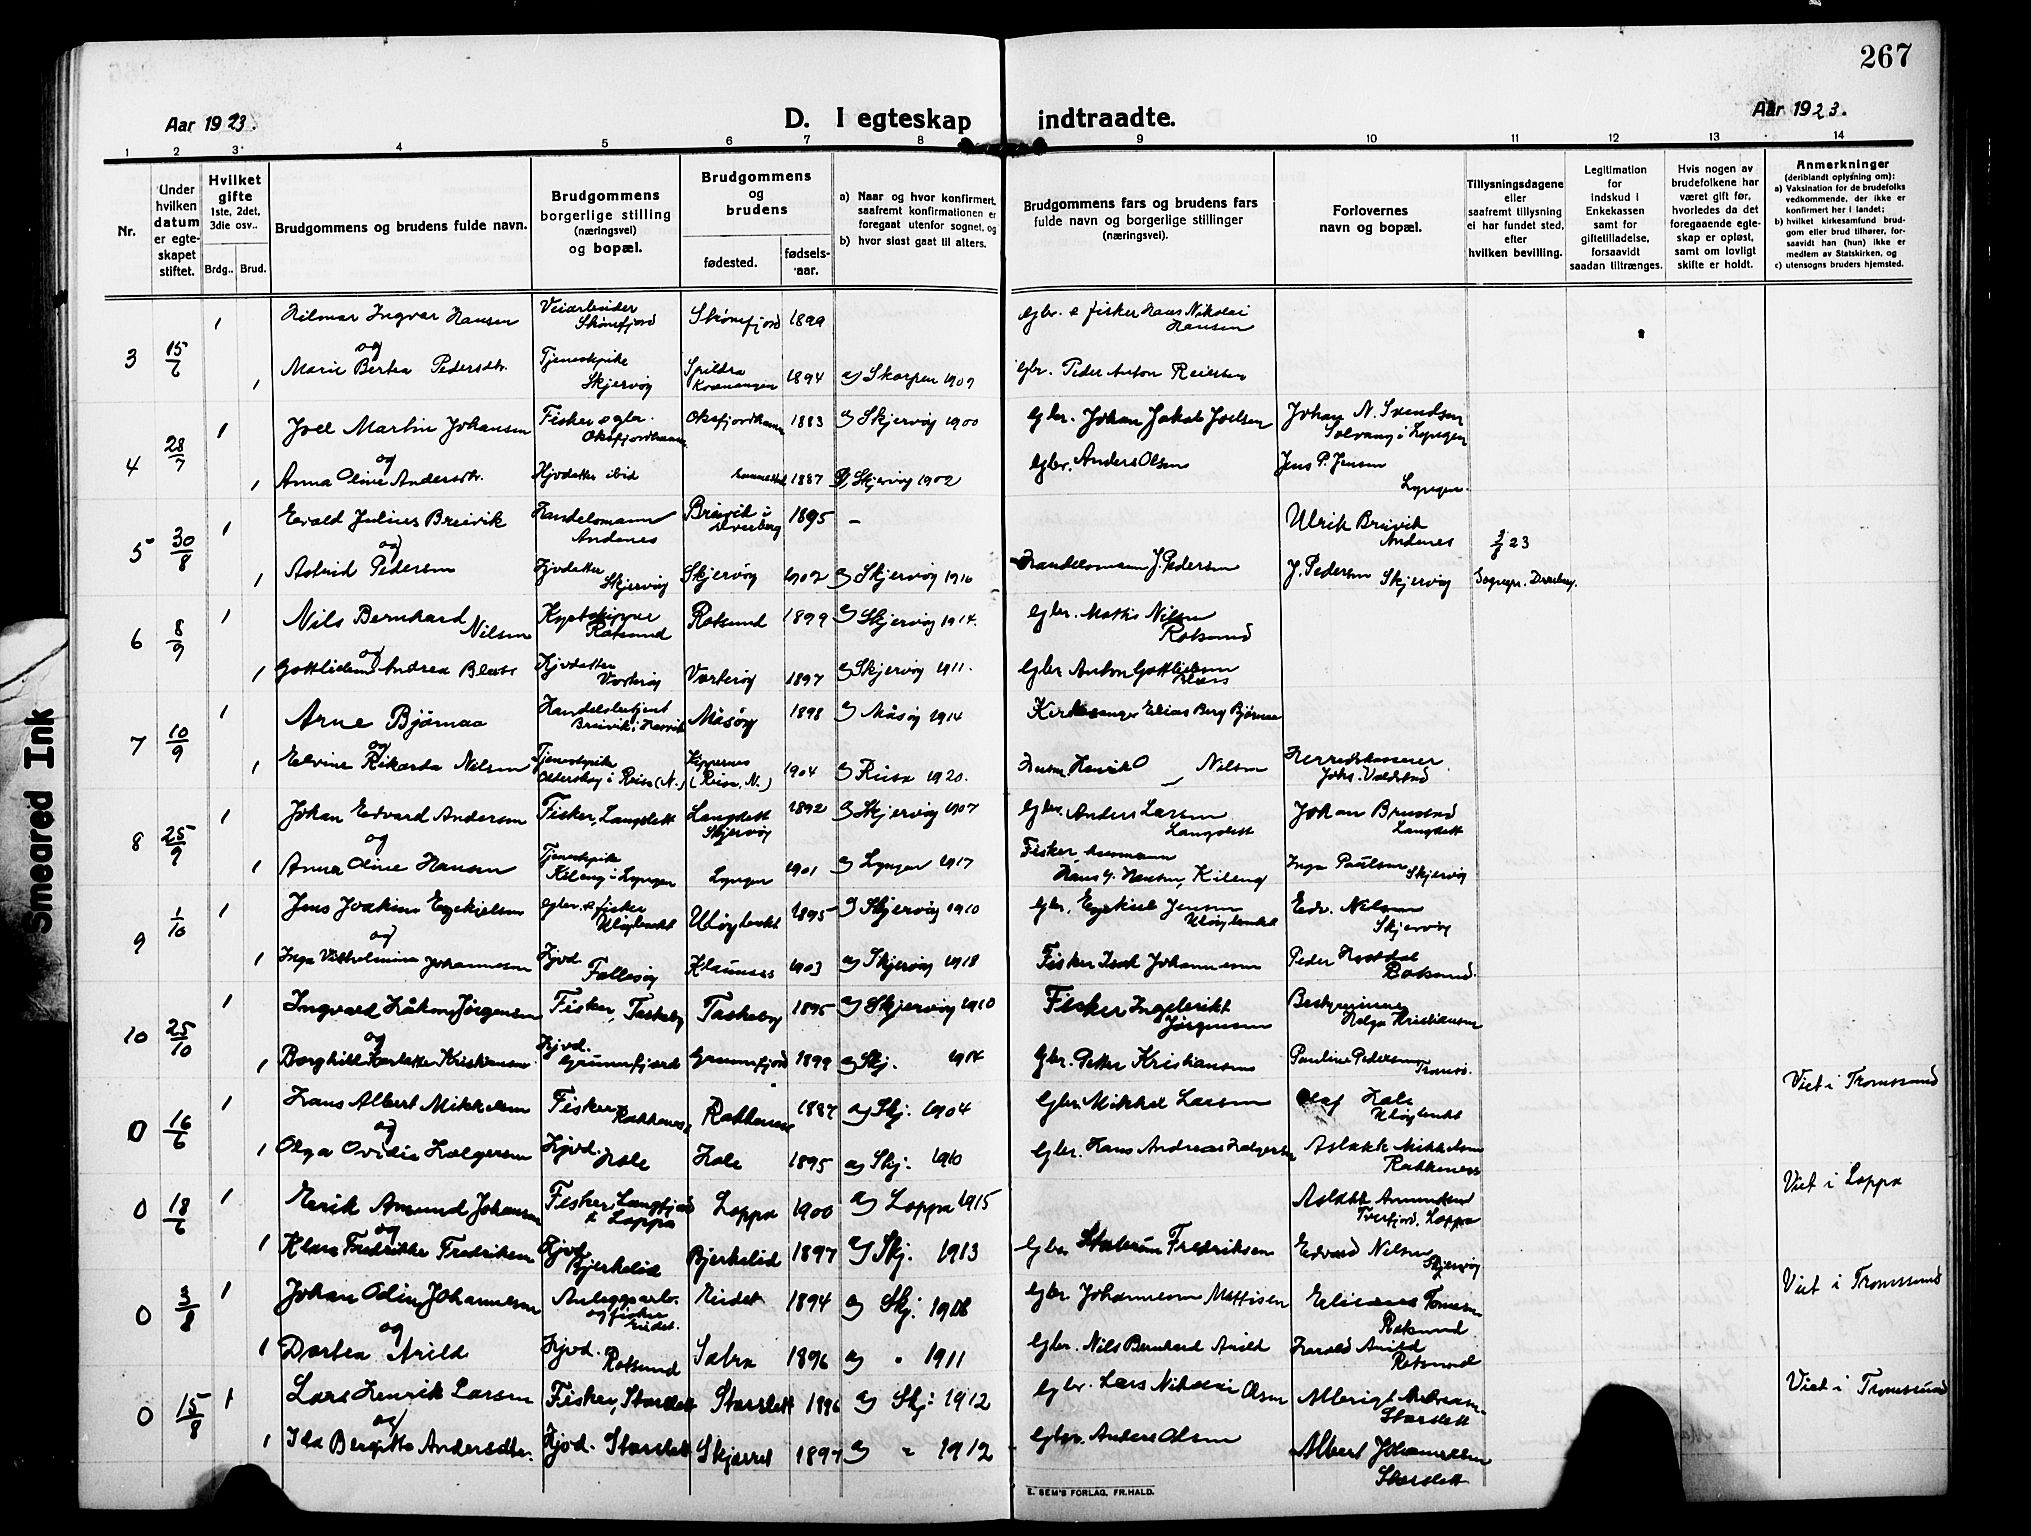 267
Aar 1923.
D. I egteskap indtraadte.
Aar 1923.
1 2 3 4 5 6 7 8 9 10 11 12 13 14
Nr.
Under hvilken datum er egteskapet stiftet.
Hvilket gifte 1ste, 2det, 3die osv..
Brdg.. Brud.
Brudgommens og brudens fulde navn.
Brudgommens borgerlige stilling (næringsvei) og bopæl.
Brudgommens og brudens
fødested. fødselsaar.
a) Naar og hvor konfirmert, saafremt konfirmationen er foregaat utenfor sognet, og
b) hvor sidst gaat til alters.
Brudgommens fars og brudens fars fulde navn og borgerlige stillinger (næringsvei).
Forlovernes navn og bopæl.
Tillysningsdagene eller saafremt tillysning ei har fundet sted, efter hvilken bevilling.
Legitimation for indskud i Enkekassen samt for giftetilladelse, forsaavidt saadan tiltrænges.
Hvis nogen av brudefolkene har været gift før, hvorledes da det foregaaende egteskap er opløst, samt om lovligt skifte er holdt.
Anmerkninger (deriblandt oplysning om):
a) Vaksination for de brudefolks vedkommende, der ikke er konfirmert her i landet;
b) hvilket kirkesamfund brudgom eller brud tilhører, forsaavidt han (hun) ikke er medlem av Statskirken, og
c) utensogns bruders hjemsted.
3 15/6 1 Hilmar Ingvar Hansen Veiarbeider Skønsfjord 1899 Gbr. & fisker Hans Nikolai Hansen
og
1 Marie Bertea Pedersdtr. Tjenestepike Skjervøy Spildra Kvænangen 1894 a) Skorpen 1909 Gbr. Peder Anton Reiersen
4 28/7 1 Joel Martin Johansen Fisker & gbr. Oksfjordhamn Oksfjordhamn 1883 a) Skjervøy 1900 Gbr. Johan Jakob Joelsen Johan N. Svendsen Solvang i Lyngen
og
1 Anna Oline Andersdtr. Hjvdatter ibid 1887 a) Skjervøy 1902 Gbr. Anders Olsen Jens P. Jensen Lyngen
5 30/8 1 Evald Julius Breivik Handelsmann Andenes Breivik i Dverberg 1895 - Ulrik Breivik Andenes
og
1 Astrid Pedersen Hjvdatter Skjervøy Skjervøy 1902 a) Skjervøy 1916 Handelsmann J. Pedersen J. Pedersen Skjervøy 23 Sognepr. Dverberg.
6 8/9 1 Nils Bernhard Nilsen Rotsund Rotsund 1899 a) Skjervøy 1914. Gbr. Mathis Nilsen Rotsund
og
1 Andrea Hjvdatter Vorterøy Vorterøy 1897 a) Skjervøy 1911. Gbr. Anton Gottlieb
7 10/9 1 Arne Bjørnaa Handelsbetjent Breivik i Måsøy 1898 a) Måsøy 1914 Kirkesanger Elias Berg Bjørnaa
og
1 Elvine Rikarda Nilsen Tjenestepike Olderskog i Reisa (N.) (Reisa, N.) 1904 a) Reisa 1920. Henrik Nilsen Herredskasserer Johs. Valdstad
8 25/9 1 Johan Edvard Andersen Fisker, Langslett Langslett Skjervøy 1892 a) Skjervøy 1907 Gbr. Anders Larsen Langslett Johan Langslett
og
1 Anna Oline Hansen Tjenestepike Kileng i Lyngen Lyngen 1901 a) Lyngen 1917 Fisker Hans Hansen, Kileng Inga Paulsen Skjervøy
9 1/10 1 Jens Joakim Ezekielsen Gbr. & fisker Uløybukt Uløybukt 1895 a) Skjervøy 1910 Gbr. Ezekiel Jensen Uløybukt Edv. Nilsen Skjervøy
og
1 Inga Vilhelmine Johannesen Hjvd. Follesøy Klaunes 1903 a) Skjervøy 1918 Fisker Isak Johannesen Peder Rotsund.
10 25/10 1 Ingvald Håkon Jørgensen Fisker, Taskeby Taskeby 1895 a) Skjervøy 1910 Fisker Ingebrikt Jørgensen Bestyrerinne Helga Kristiansen
og
1 Borghild Kristiansen. Hjvd. Grunnfjord Grunnfjord 1899 a) Skj. 1914 Gbr. Petter Kristiansen Pauline Pedersen Tromsø.
0 16/6 1 Hans Albert Mikkelsen Fisker Rakkenes Rakkenes 1887 a) Skj. 1904 Gbr. Mikkel Larsen Olaf Hole Uløybukt Viet i Tromssund
og
1 Olga Ovidie Holgersen Hjvd. Hole Hole 1895 a) Skj. 1910 Gbr. Hans Andreas Holgersen Aslakk Mikkelsen Rakkenes
0 18/6 1 Erik Amund Johansen Fisker, Langfjord i Loppa Loppa 1900 a) Loppa 1915 Aslakk Amundsen Tverfjord, Loppa Viet i Loppa
og
1 Klara Fredrikke Fredriksen Hjvd. Bjerkelid Bjerkelid 1897 a) Skj. 1913 Gbr. Fredriksen Edvard Nilsen Skjervøy
0 3/8 1 Johan Odin Johannesen Anleggsarb. og fisker Eidet. Eidet 1894 a) Skj. Gbr. Johannesen Mattisen Rotsund Viet i Tromssund
og
1 Dortea Arild Hjvd. Rotsund 1896 a) " 1911 Gbr. Nils Bernhard Arild Harald Arild Rotsund
0 15/8 1 Lars Henrik Larsen Fisker, Storslett Storslett 1886 a) Skj. 1912 Gbr. Lars Nikolai Olsen Albrigt Andreassen Storslett Viet i Tromssund
og
1 Ida Bergitte Andersdtr. Hjvd. Storslett 1897 a) " 1912 Gbr. Anders Olsen Albert Johannessen Storslett
E. SEM'S FORLAG, FR.HALD.
Smeared Ink